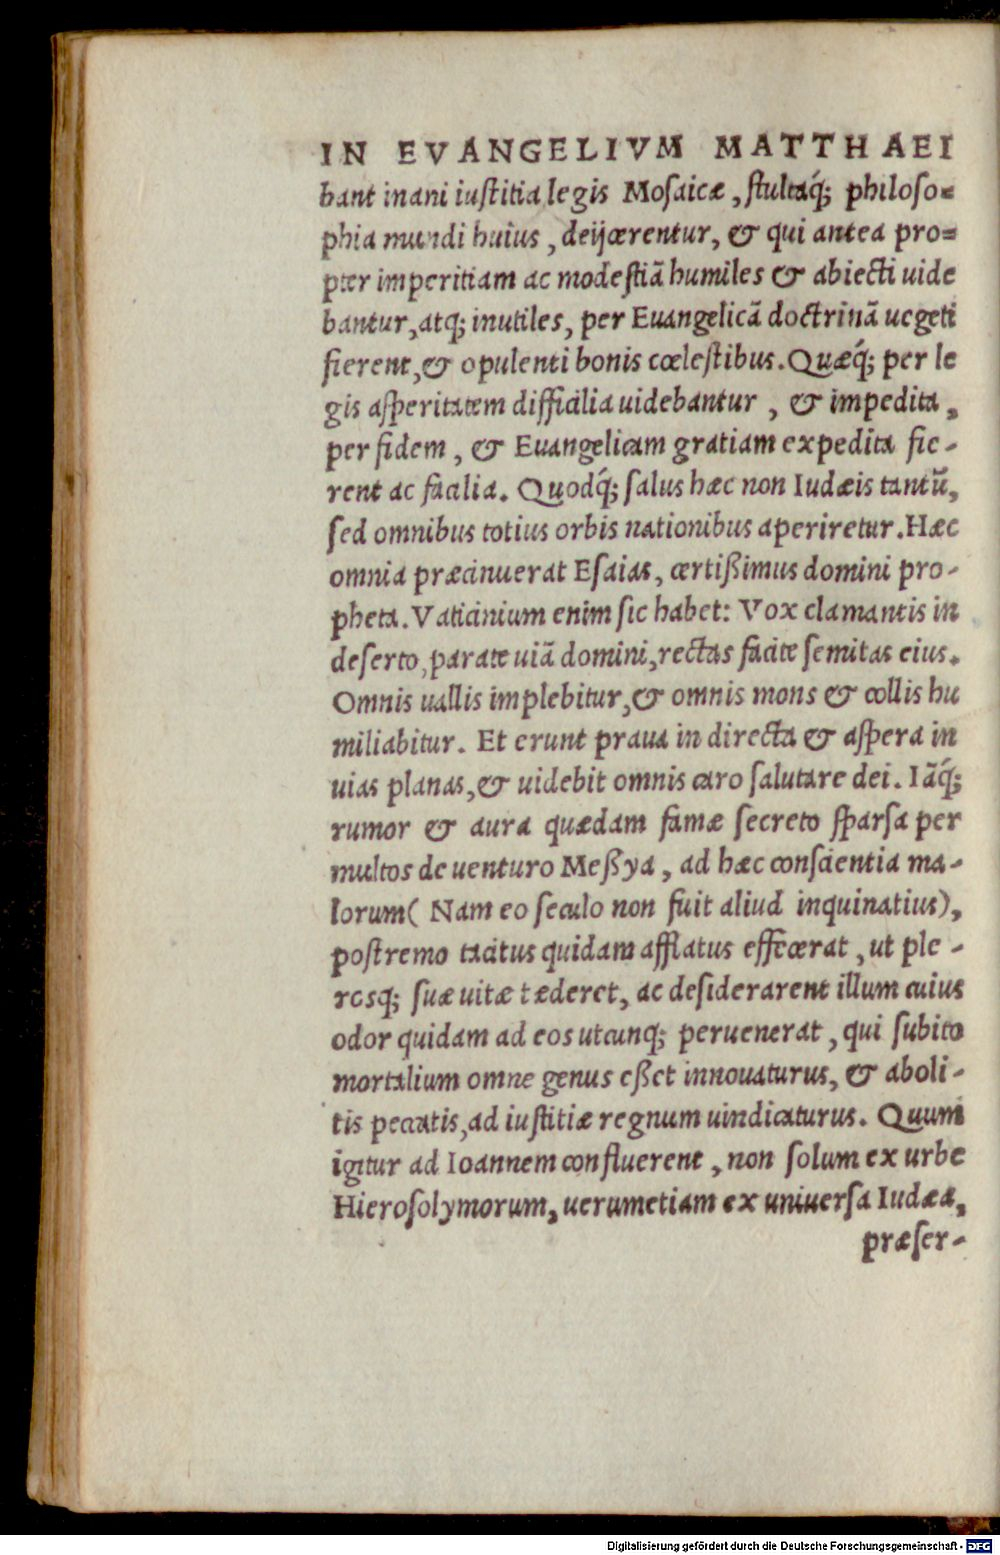 IN EVANGELIVM MATTHAEI
bant inani iuſtitia legis Moſaicæ, ſtultaq́; philoſo=
phia mundi huius, deijcerentur, & qui antea pro=
pter imperitiam ac modeſtiā humiles & abiecti uide
bantur, atq; inutiles, per Euangelicā doctrinā uegeti
fierent, & opulenti bonis cœleſtibus. Quæq́; per le
gis aſperitatem difficilia uidebantur, & impedita,
per fidem, & Euangelicam gratiam expedita fie-
rent ac facilia. Quodq́; ſalus hæc non Iudæis tantū,
ſed omnibus totius orbis nationibus aperiretur. Hæc
omnia præcinuerat Eſaias, certißimus domini pro-
pheta. Vaticinium enim ſic habet: Vox clamantis in
deſerto, parate uiā domini, rectas facite ſemitas eius.
Omnis uallis implebitur, & omnis mons & collis hu
miliabitur. Et erunt praua in directa & aſpera in
uias planas, & uidebit omnis caro ſalutare dei. Iāq́;
rumor & aura quædam famæ ſecreto ſparſa per
multos de uenturo Meßya, ad hæc conſcientia ma-
lorum( Nam eo ſeculo non fuit aliud inquinatius),
poſtremo tacitus quidam afflatus effecerat, ut ple-
resq; ſuæ uitæ tæderet, ac deſiderarent illum cuius
odor quidam ad eos utcunq; peruenerat, qui ſubito
mortalium omne genus eßet innouaturus, & aboli-
tis peccatis, ad iuſtitiæ regnum uindicaturus. Quum
igitur ad Ioannem confluerent, non ſolum ex urbe
Hieroſolymorum, uerumetiam ex uniuerſa Iudæa,
præſer-
Digitalisierung gefördert durch die Deutsche Forschungsgemeinschaft - DFG